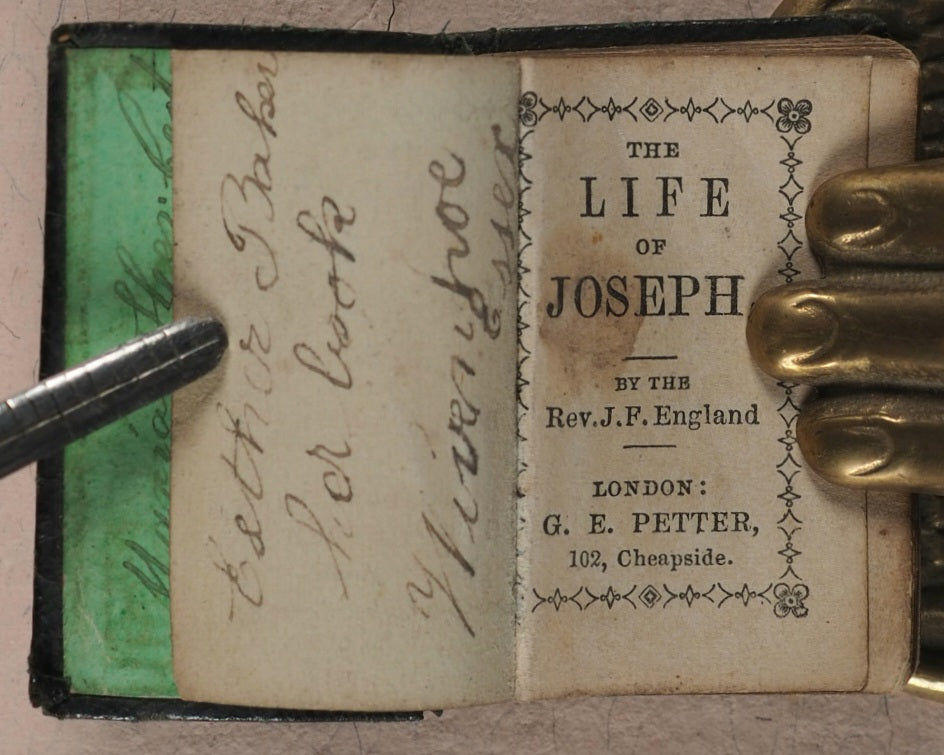 Esther Baker
her book
Wivenhoe
Essex
THE
LIFE
OF
JOSEPH,
BY THE
Rev. J. F. England
LONDON:
G. E. PETTER,
102, Cheapside.